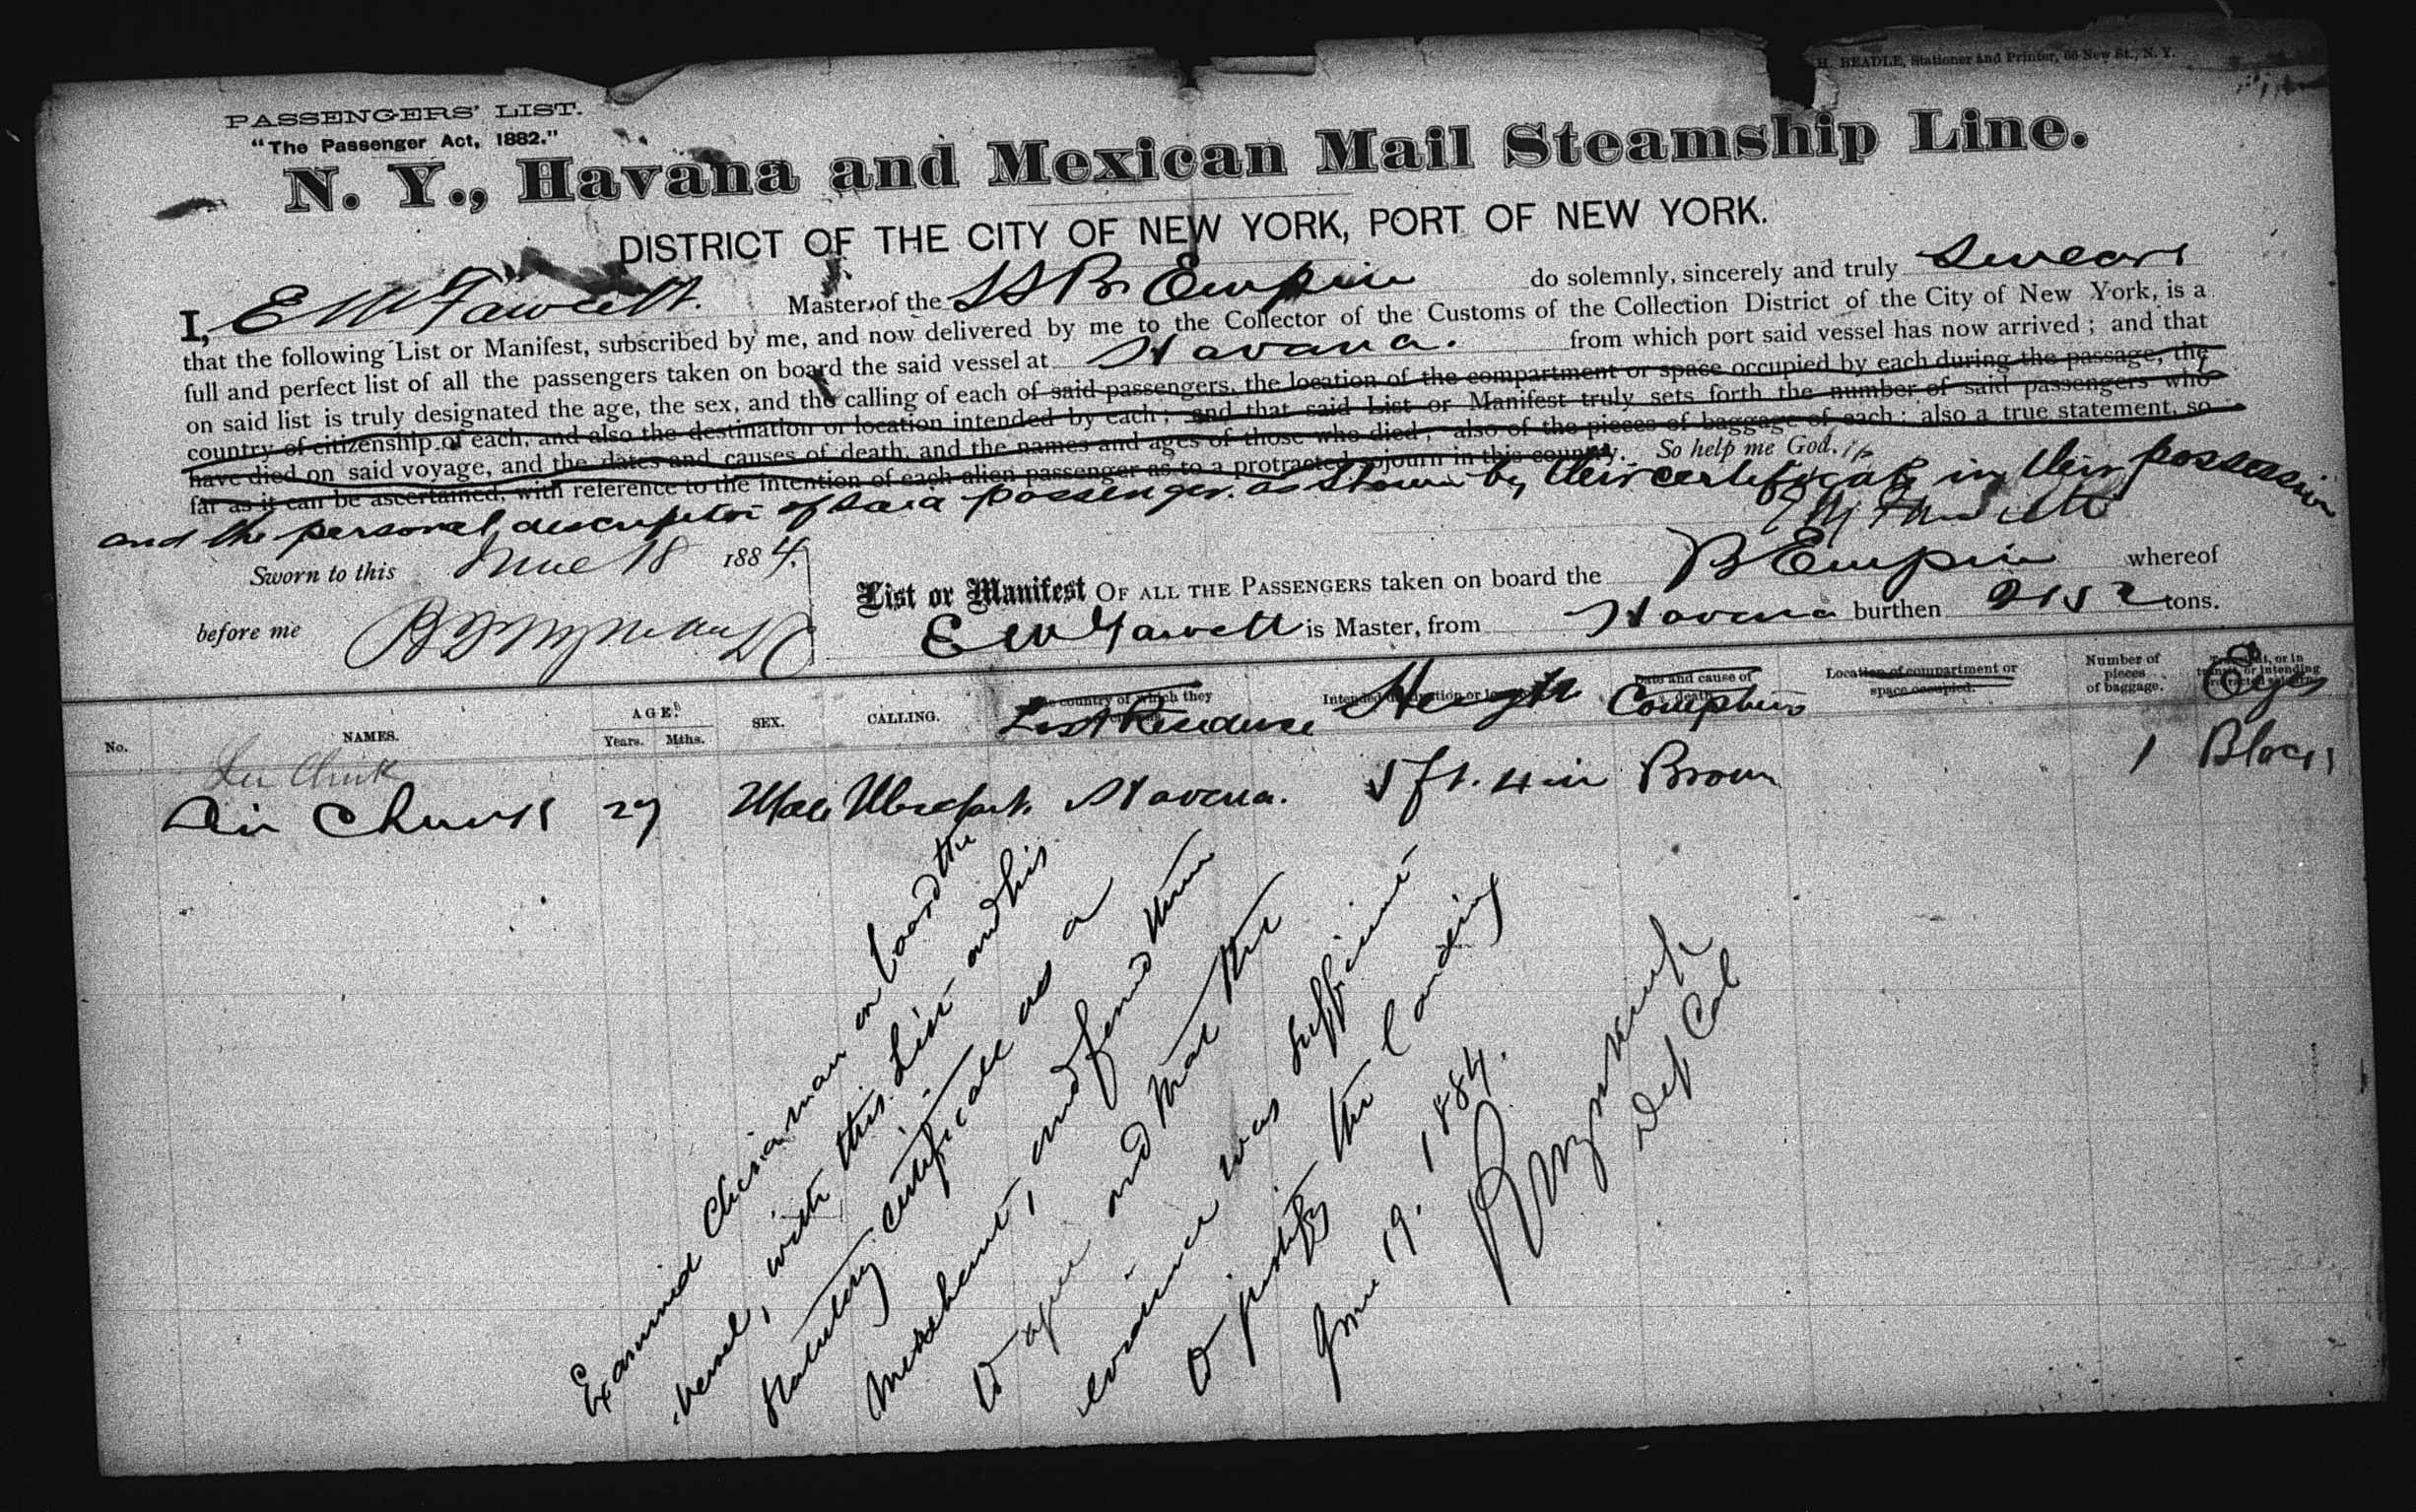 H. BEADLE, Stationer and Printer, 66 New St., N. Y.
PASSENGERS' LIST.
"The Passenger Act, 1882."
N. Y., Havana and Mexican Mail Steamship Line.
DISTRICT OF THE CITY OF NEW YORK, PORT OF NEW YORK.
I, E W Fawcett. Master of the SS Br. Empire do solemnly, sincerely and truly Swear
that the following List or Manifest, subscribed by me, and now delivered by me to the Collector of the Customs of the Collection District of the City of New York, is a
full and perfect list of all the passengers taken on board the said vessel at Havana. from which port said vessel has now arrived; and that
on said list is truly designated the age, the sex, and the calling of each of said passengers, the location of the compartment or space occupied by each during the passage, the
country of citizenship of each, and also the destination or location intended by each; and that said List or Manifest truly sets forth the number of said passengers who
have died on said voyage, and the dates and causes of death, and the names and ages of those who died; also of the pieces of baggage of each; also a true statement, so
far as it can be ascertained, with reference to the intention of each alien passenger as to a protracted sojourn in this country. So help me God.
and the personal description of said passenger as shown by their certificate in their possession
E W Fawcett
Sworn to this June 18 1884.
before me
List or Manifest OF ALL THE PASSENGERS taken on board the B Empire whereof
E W Fawcett is Master, from Havana burthen 2152 tons.
No. NAMES. AGE. Years. Mths. SEX. CALLING. Last Residence Height Complexion Location of compartment or space occupied. Number of pieces of baggage. Eyes
27 Male Merchant. Havana. 5 ft. 4 in Brown 1 Black
Examined Chinaman on board the
vessel, with this List and his
statutory certificate as a
Merchant, and found them
to agree and that the
evidence was sufficient
to justify the landing
June 19. 1884.
Dep Col